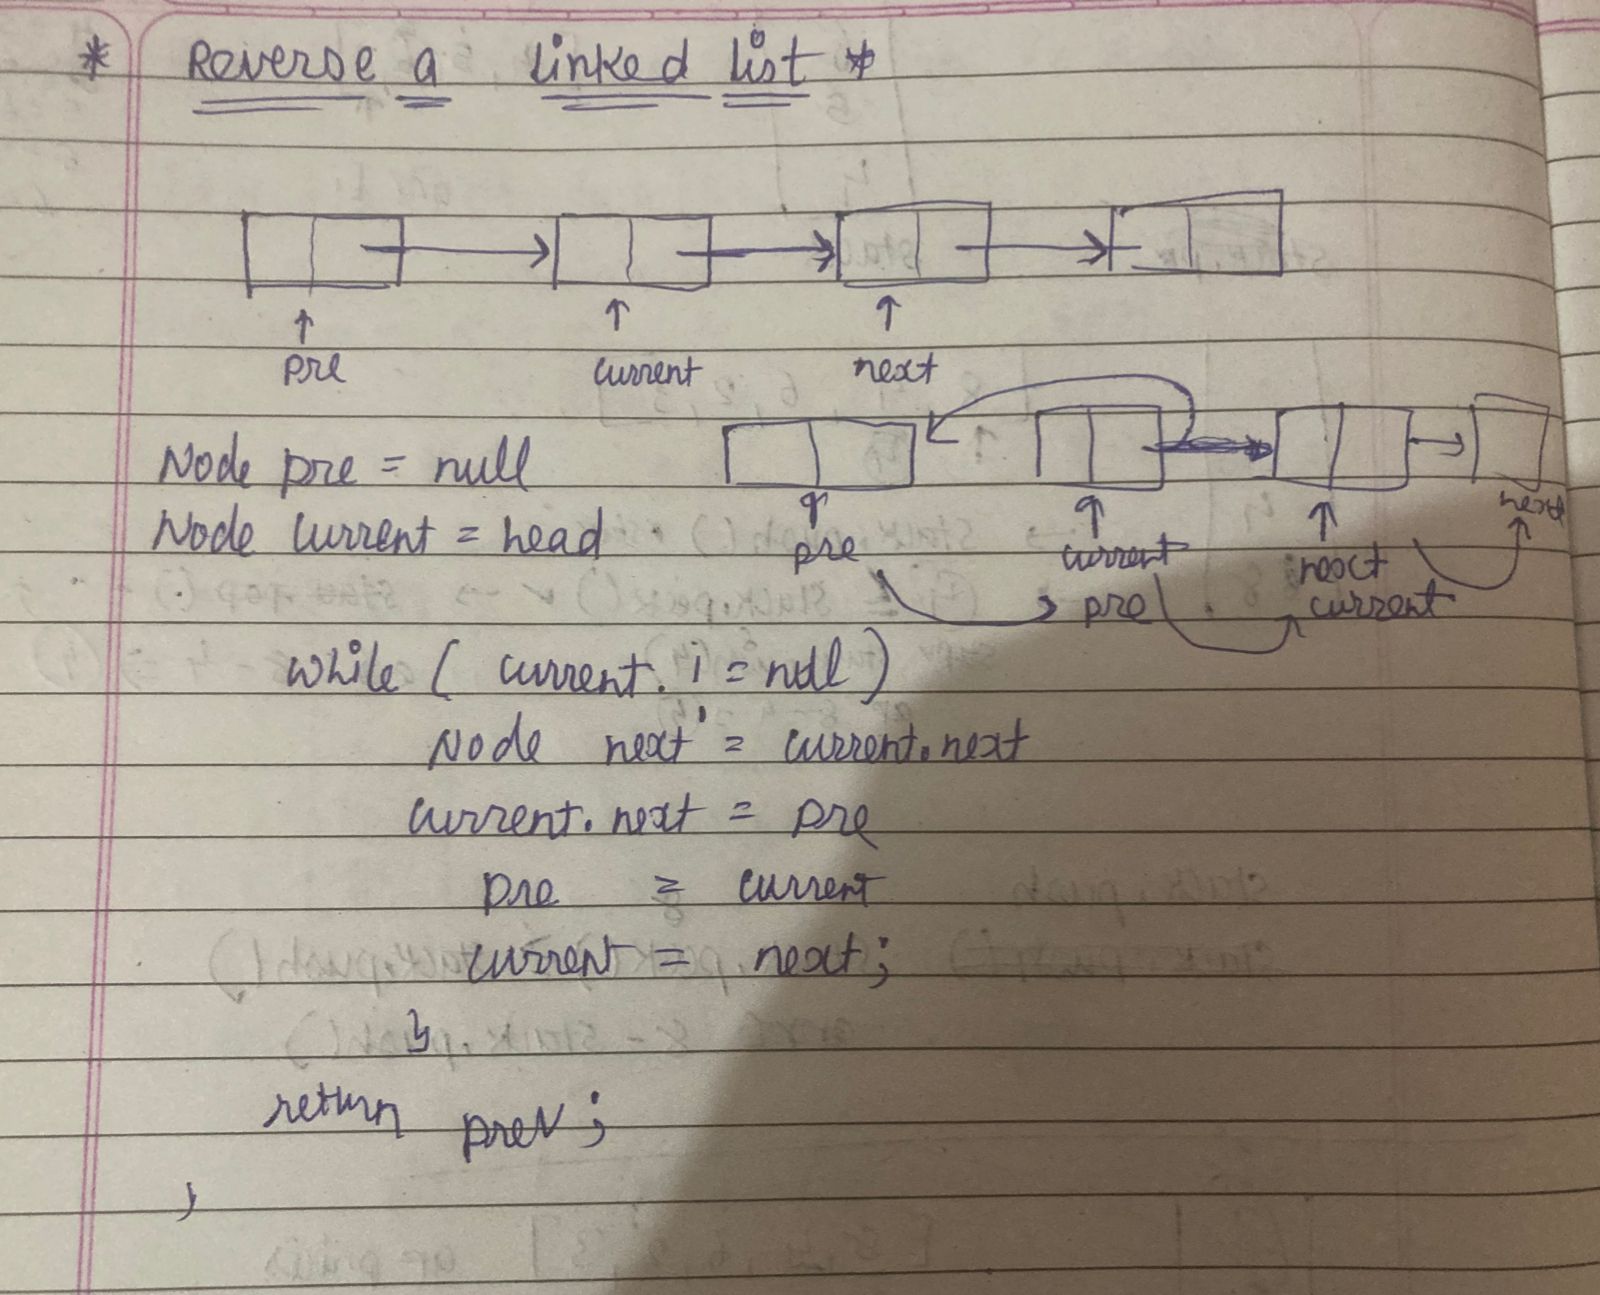 * Reverse a linked list *
pre current next
Node pre = null
Node current = head
pre current next next
pre current
while ( current. != null )
Node next = current.next
current.next = pre
pre = current
current = next;
}
return prev;
}